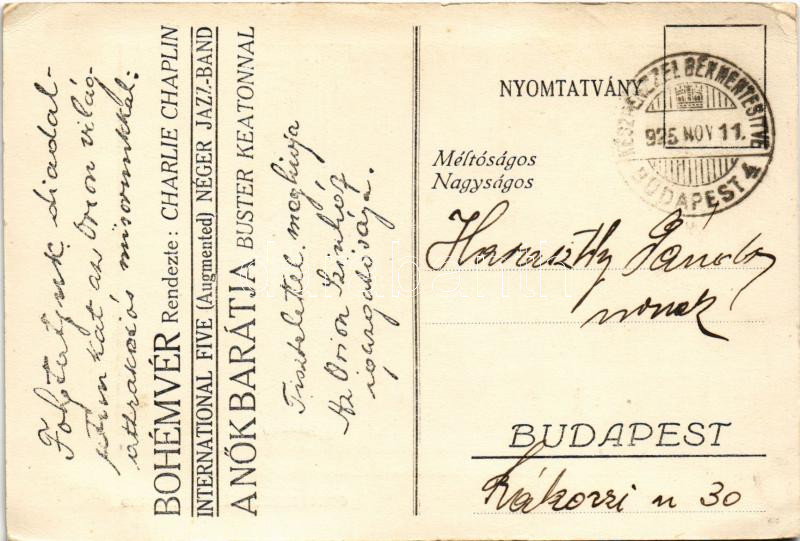 Folytatjuk diadal-
utunkat az Orion világ-
attrakciós műsorunkkal:
BOHÉMVÉR Rendezte: CHARLIE CHAPLIN
INTERNATIONAL FIVE (Augmented) NÉGER JAZZ-BAND
A NŐK BARÁTJA BUSTER KEATONNAL
Tisztelettel meghivja
Az Orion Szinház
igazgatósága.
NYOMTATVÁNY
KÉSZPÉNZZEL BÉRMENTESITVE
925 NOV 11.
BUDAPEST 4
Méltóságos
Nagyságos
Haraszthy
BUDAPEST
Rákoczi u 30